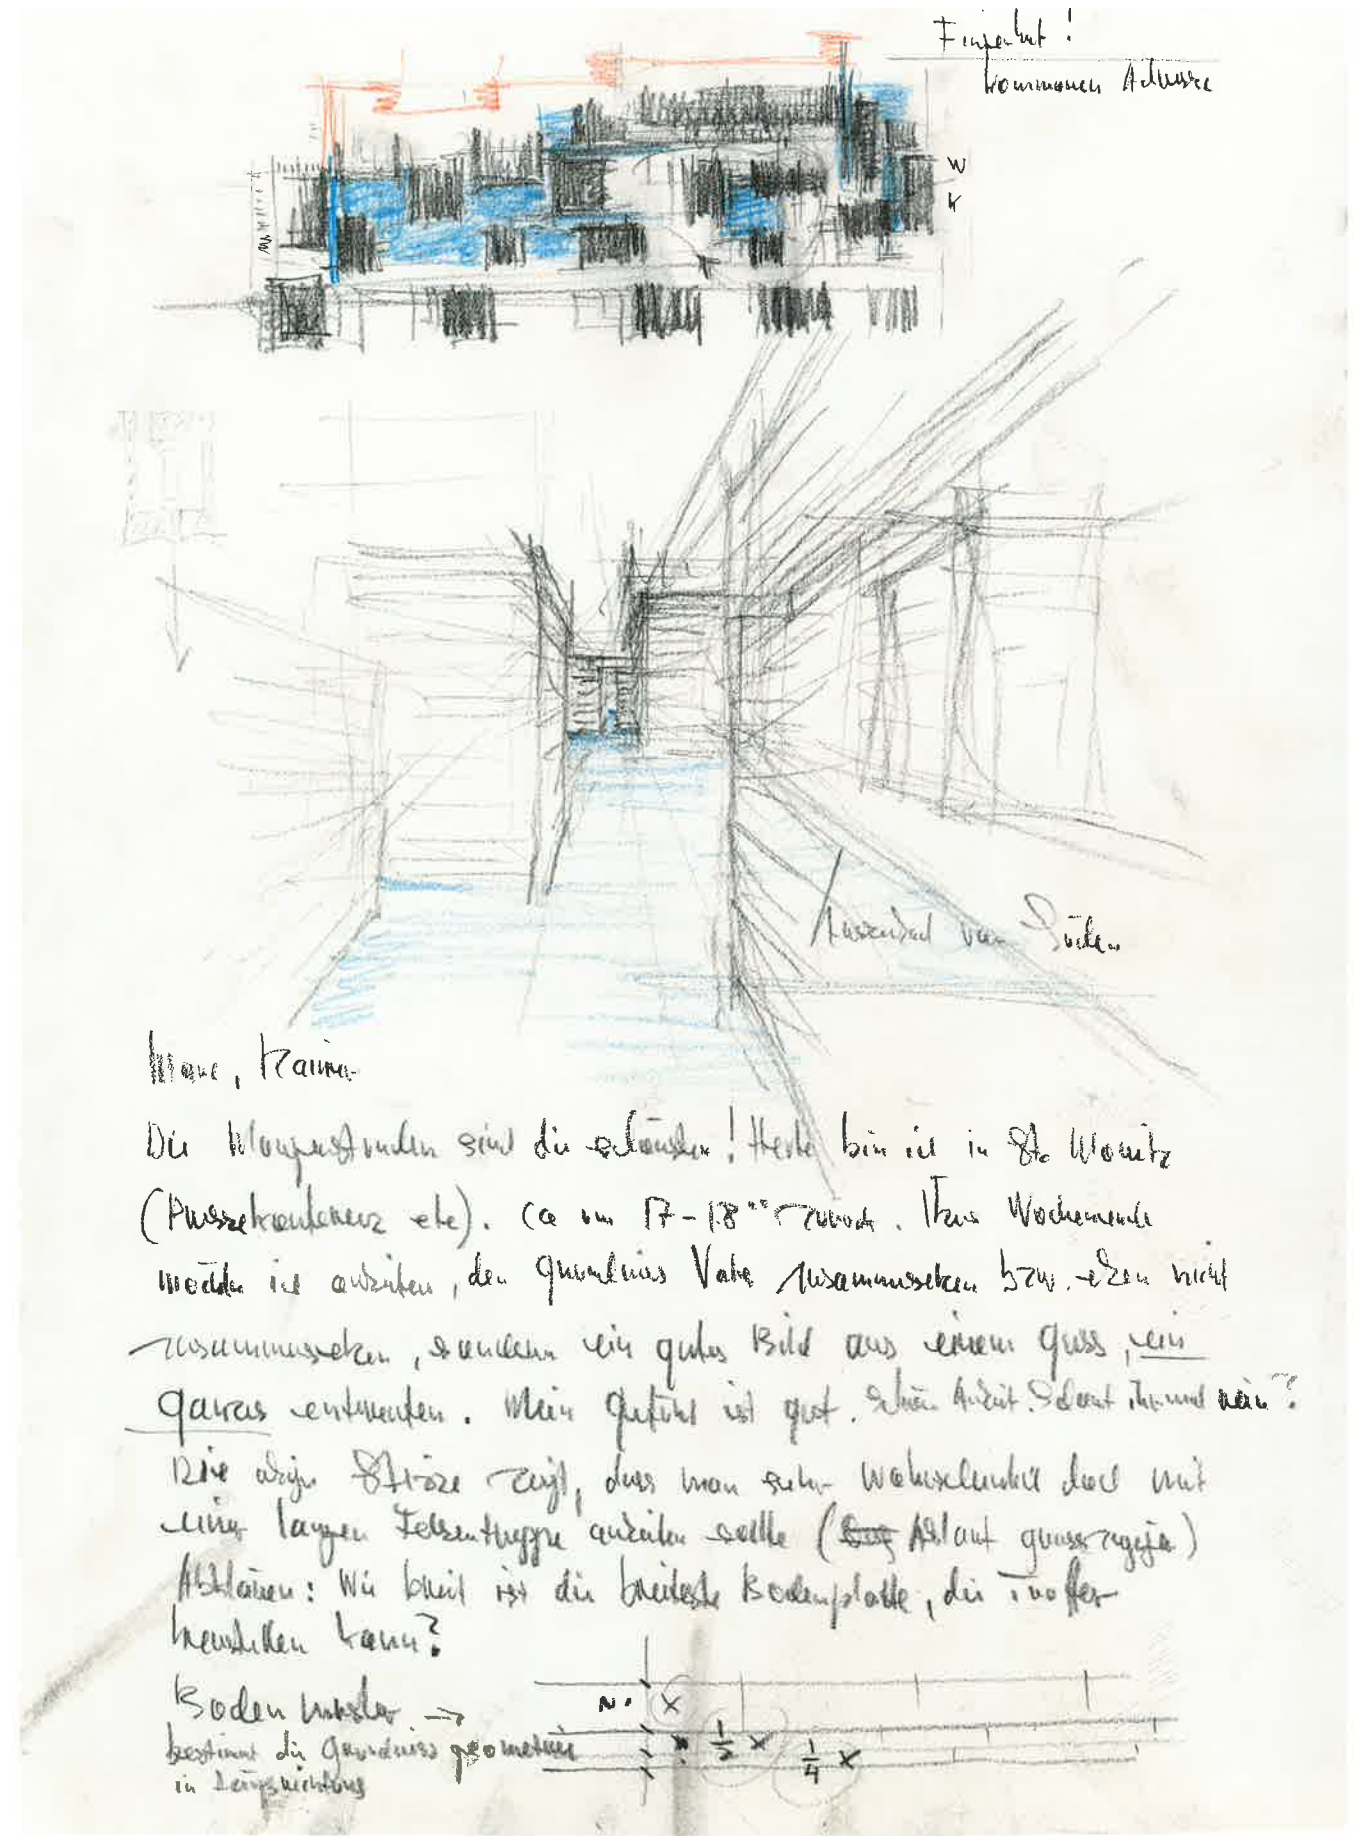 Eingefärbt!
kommenen Adresse
W
K
Ausschnitt von Süden
Marc, Rainer
Die Morgenstunden sind die schönsten! Heute bin ich in St. Moritz
(Pressekonferenz etc). Ca um 17-18°° zurück. Übers Wochenende
möchte ich arbeiten, den Grundriss Vals zusammensetzen bzw. eben nicht
zusammensetzen, sondern ein gutes Bild aus einem Guss, ein
Ganzes entwerfen. Mein Gefühl ist gut. Schöne Arbeit. Schaut ihr mal rein?
Die obige Skizze zeigt, dass man sehr wahrscheinlich doch mit
einer langen Felsentreppe arbeiten sollte (Ablauf grosszügig)
Abklären: Wie breit ist die breiteste Bodenplatte, die Truffer
herstellen kann?
Bodenmuster →
bestimmt die Grundrissgeometrie
in Längsrichtung
N. X
1/2 X
1/4 X